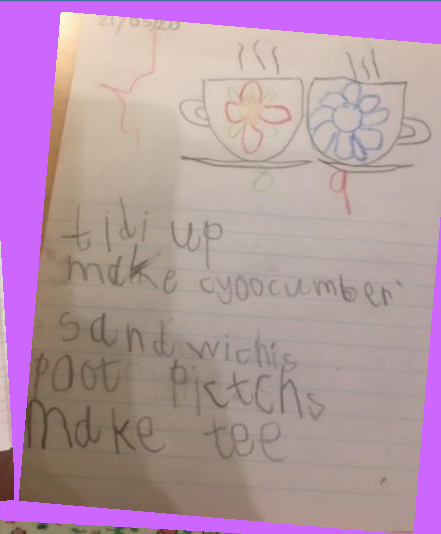 21/05/20
tidi up
make cyoocumber
sandwichis
poot pictchs
make tee